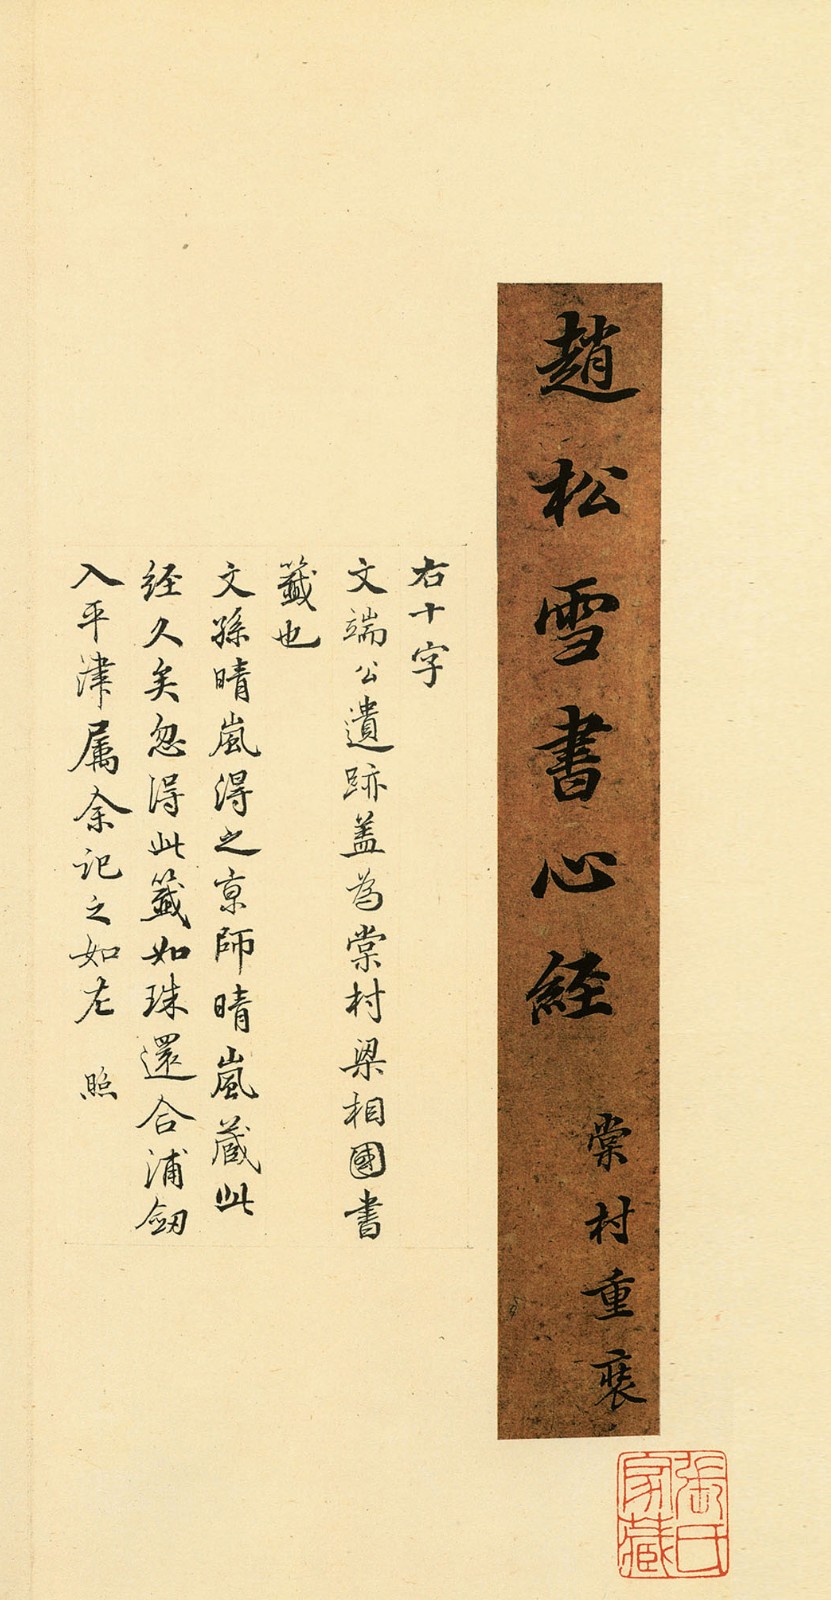 趙松雪書心經
棠村重裝
右十字
文端公遺跡盖為棠村梁相國書
籤也
文孫晴嵐得之京師晴嵐藏此
經久矣忽得此籤如珠還合浦劒
入平津属余記之如左 照
張氏家藏